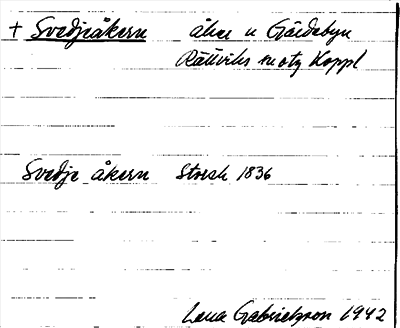 + Svedjeåkern åker n Gärdebyn
Rättviks sn o tg Koppl
Svedje åkern Storsk 1836
Lena Gabrielsson 1942